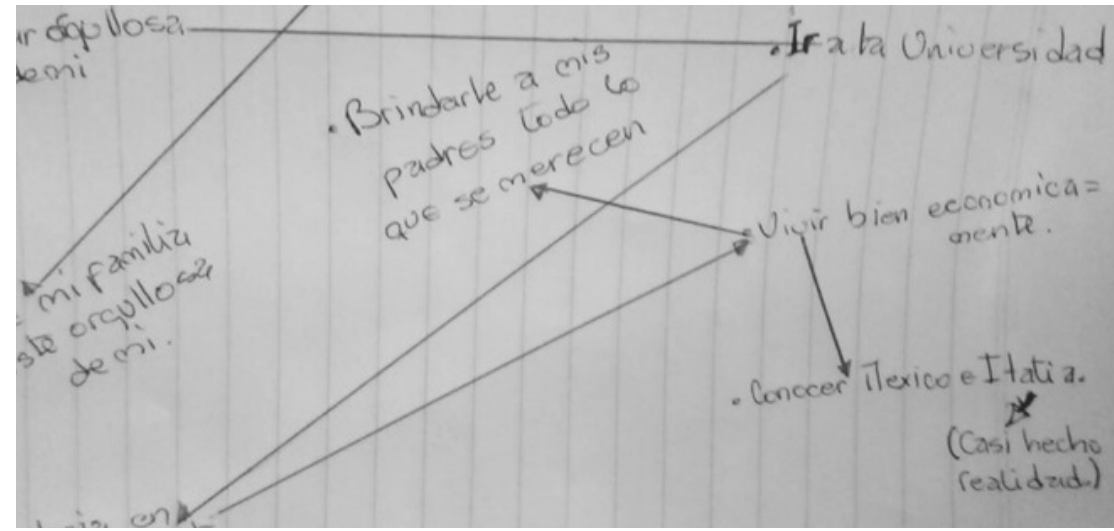 orgullosa
de mi
. Ir a la Universidad
. Brindarle a mis
padres todo lo
que se merecen
. Vivir bien economica=
mente.
mi familia
este orgullosa
de mi.
. Conocer Mexico e Italia.
(Casi hecho
realidad.)
en